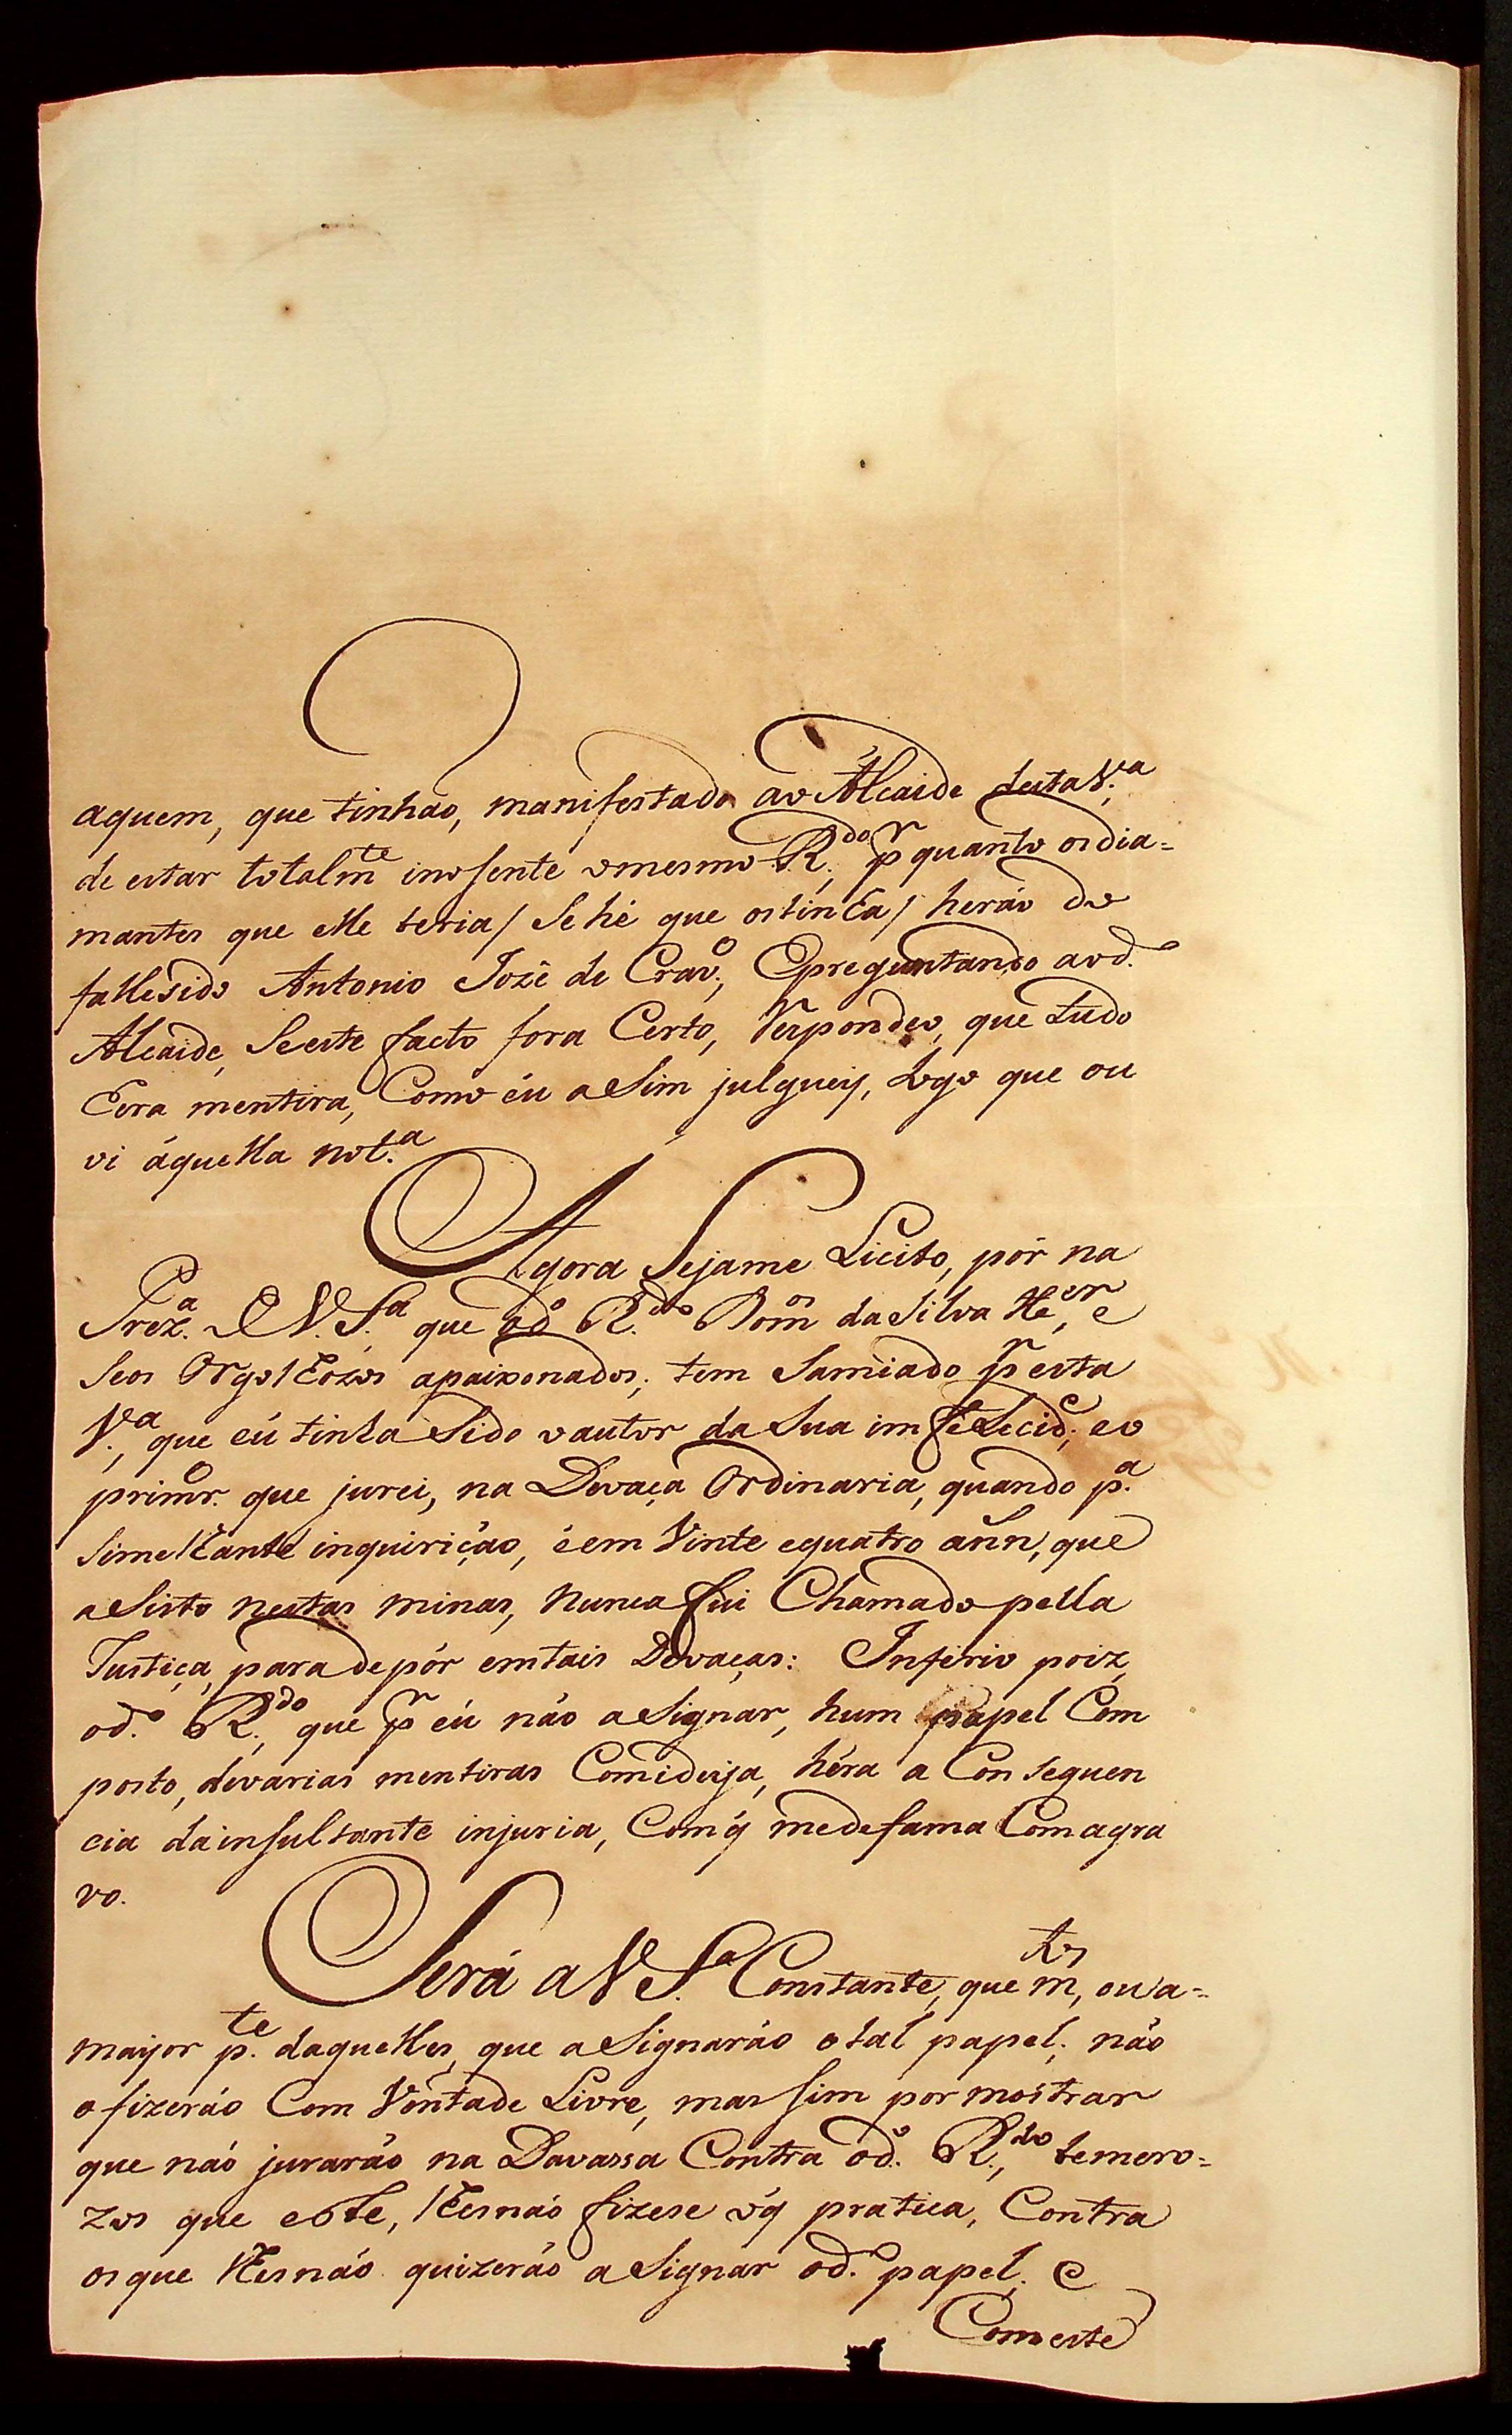 aquem, que tinhaõ, manifestado ao Alcaide desta V.ª
de estar totalm.te inosente o mesmo R.do p.r quanto os dia=
mantes que elle teria / Se hé que os tinha / heraõ do
fallesido Antonio Jozê de Crav.o, Epreguntando aod.
Alcaide, Seeste facto fora Certo, Respondeo, que tudo
Eera mentira, Como éu aSim julguey, Logo que ou
vi áquella not.ª
Agora Sejame Licito, pôr na
Prez.ª de V. S.ª que od.o R.do Dom.os da Silva X.er, e
Seos Orgolhozos apaixonados; tem Samiado p.r esta
V.ª, que eu tinha Sido o autor da Sua imfeLecid.e; eo
primr.o que jurei, na Devaça Ordinaria, quando p.ª
Simelhante inquiriçáo, éem Vinte equatro ann, que
aSisto nestas minas, Nunca fui Chamado pella
Justiça, para depôr emtais Devaças: Inferio poiz,
od.o R.do, que p.r éu náo aSignar, hum papel Com
posto, devarias mentiras Comideija, héra a Consequen
cia dainsultante injuria, Comq̃ medefama Comagra
vo.
Será a V S.ª Constante, que m.tos, oua=
mayor p.te daquelles, que aSignaráo otal papel; náo
ofizeráo Com Vontade Livre, mas Sim por mostrar
que náo juraráo na Davassa Contra od.o R.do, temero=
zos que este, lhesnáo fizese oq̃ pratica, Contra
osque lhesnáo quizeráo aSignar od.o papel. E
Comeste